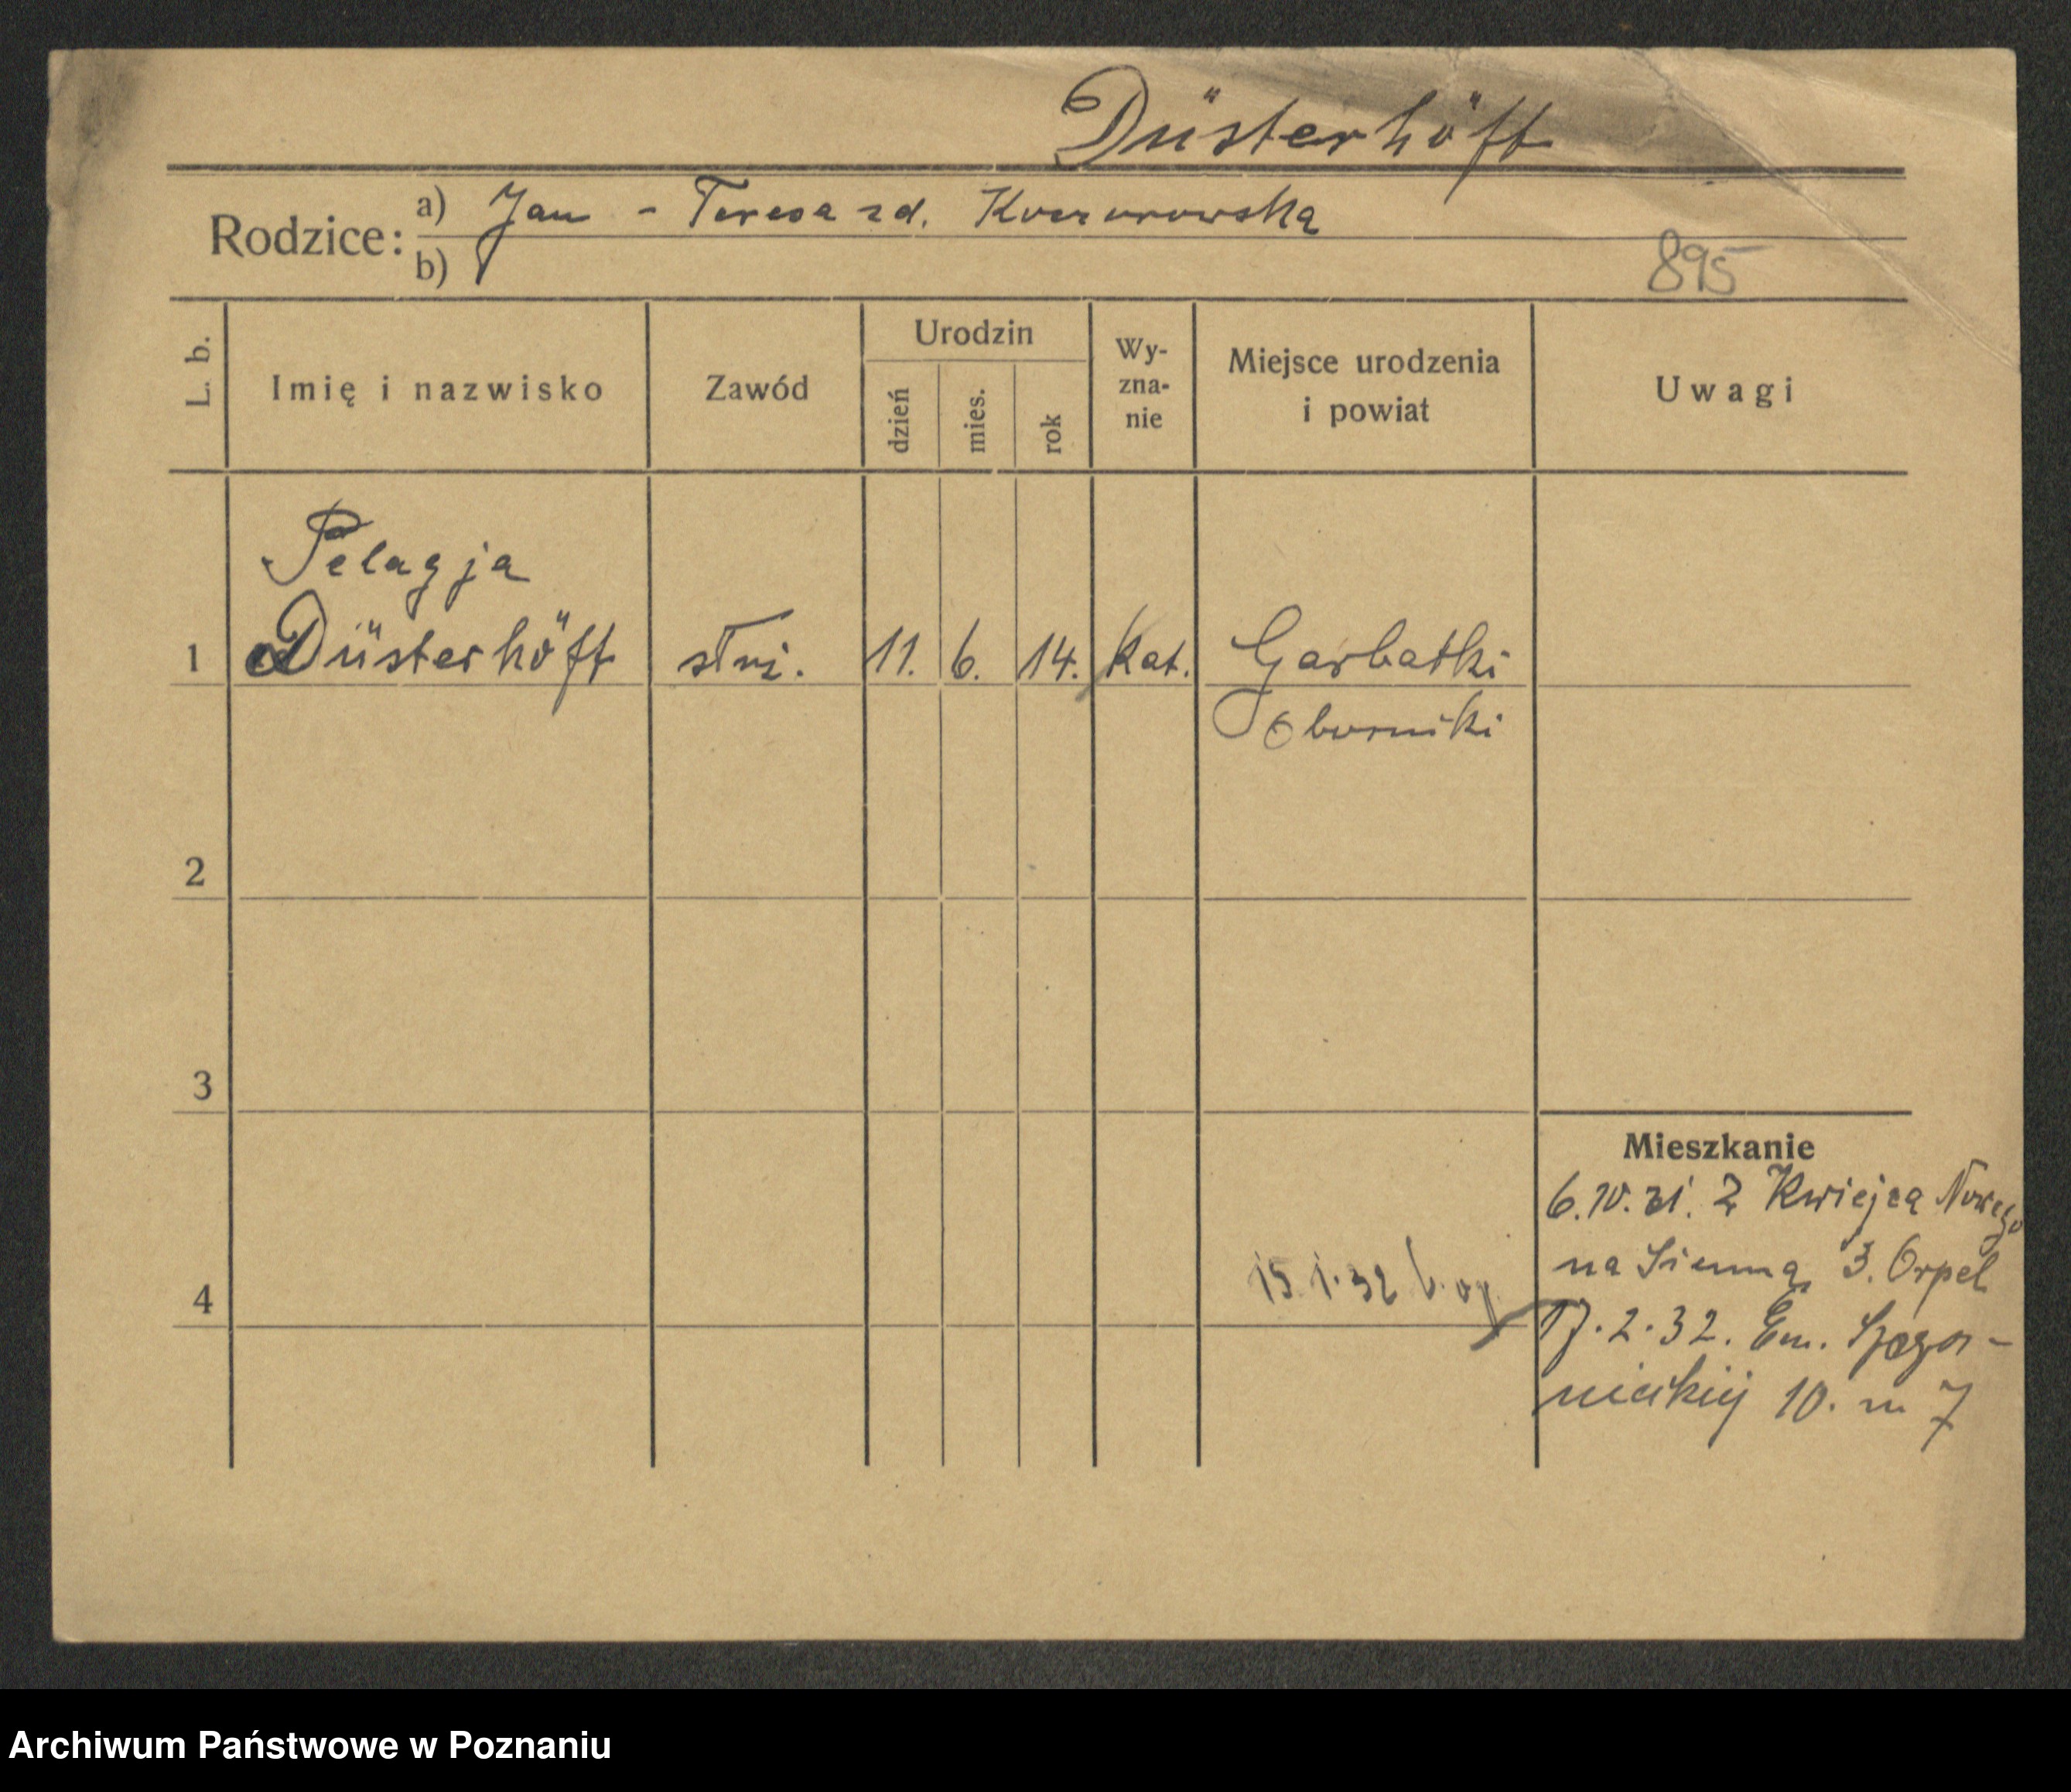 Düsterhöft
Rodzice: a) Jan - Teresa zd.
b)
895
L. b.
Imię i nazwisko
Zawód
Urodzin
dzień
mies.
rok
Wy-
zna-
nie
Miejsce urodzenia
i powiat
Uwagi
Pelagja
1 Düsterhöft służ. 11. 6. 14. kat. Garbatki
Oborniki
2
3
Mieszkanie
6.10.31. z Kwiejca Nowego
na Sienną 3. Orpel
15.1.32
4
17.2.32. Em.
10. m 7
Archiwum Państwowe w Poznaniu